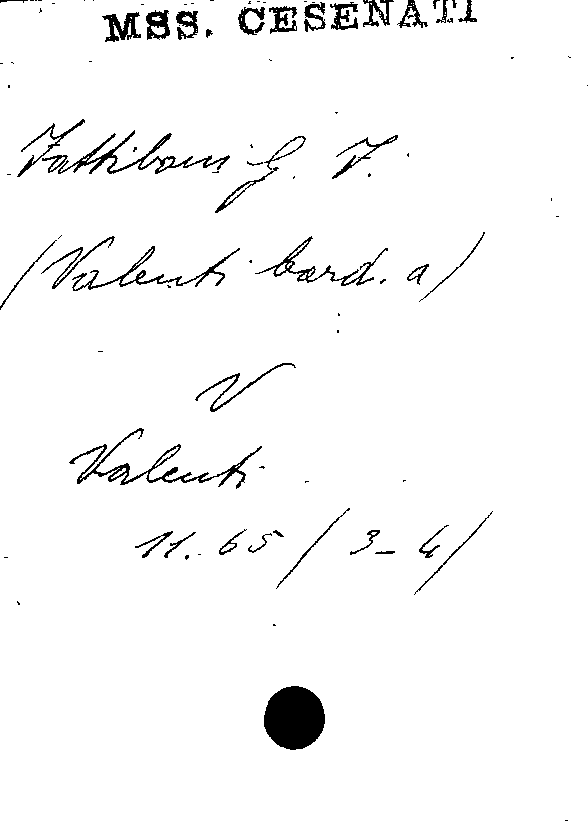 MSS. CESENATI
Fattiboni G. F.
(Valenti Card. a)
V
Valenti
11. 65 (3-4)